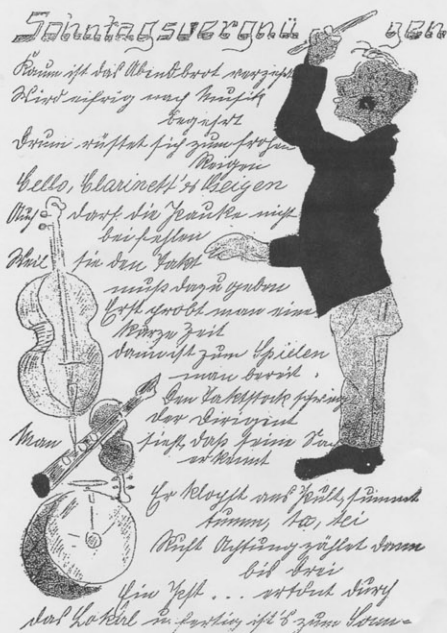 Sonntagsvergnü gen
Kaum ist das Abendbrot verzehrt
Wird eifrig nach Musik
begehrt
Drum rüstet sich zum frohen
Reigen
Cello, Clarinett's Geigen
Auch darf die Pauke nicht
beifehlen
Weil sie den Takt
muß dazu geben
Erst probt man eine
kurze Zeit
dann ist zum Spielen
man bereit.
Den Taktstock schwingt
der Dirigent
Man sieht, daß seine
er kennt
Er klopft ans Pult, summt
tumm, ta, tei
Ruft Achtung zählet dann
bis drei
Ein Fest ... ertönt durch
das Lokal u. fertig ist's zum Sonn-